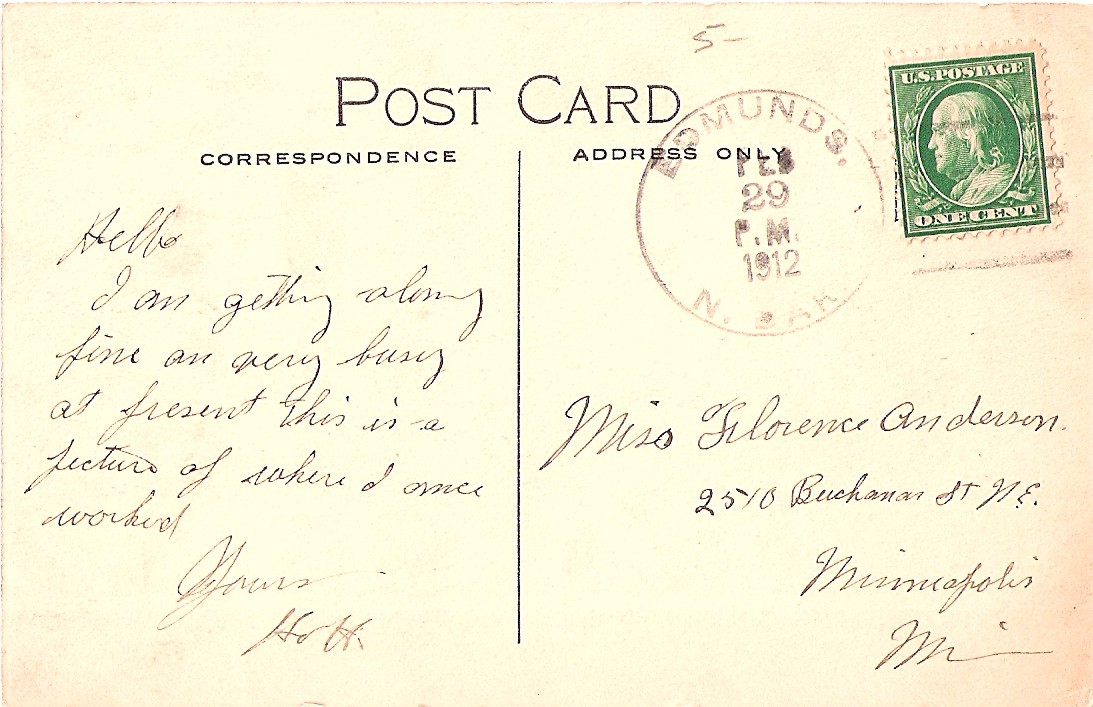 5-
POST CARD
CORRESPONDENCE
ADDRESS ONLY
EDMUNDS.
FEB
29
P.M.
1912
N. DAK
U.S. POSTAGE
ONE CENT
Hello
I am getting along
fine an very busy
at present this is a
picture of where I once
worked
Yours
Miss Florence Anderson.
2510 Buchanan St N.E.
Minneapolis